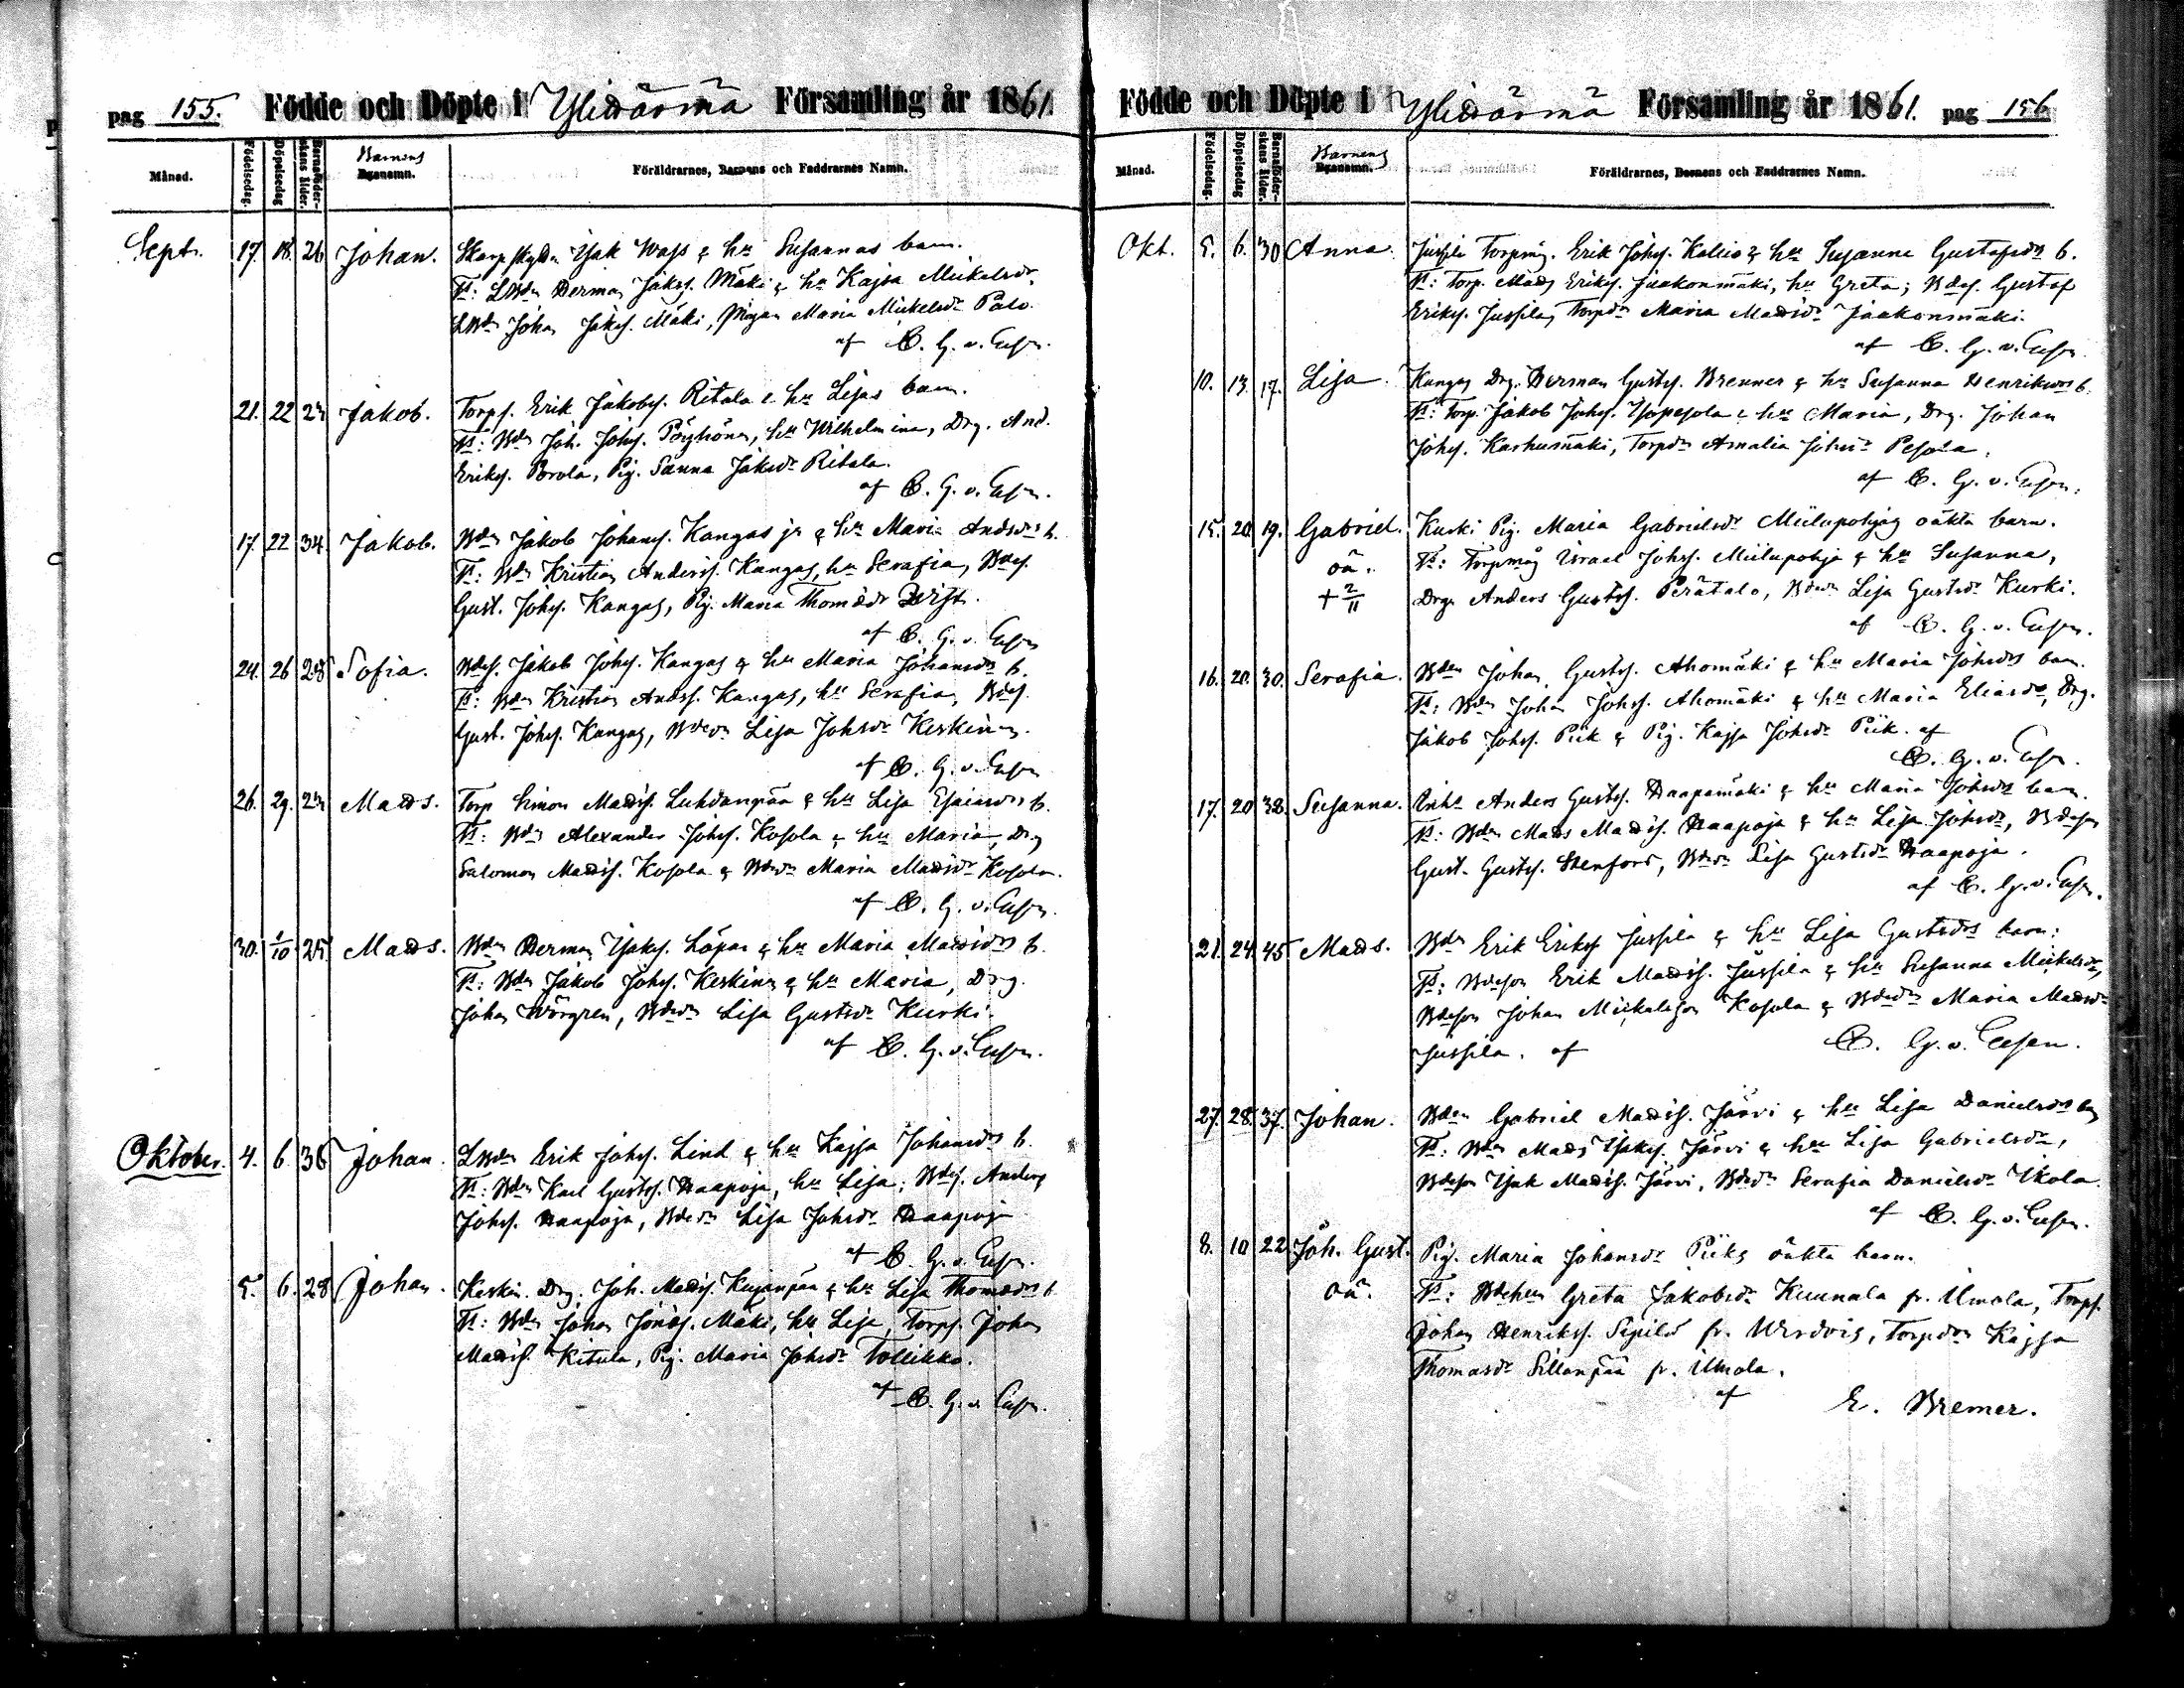 pag 155. Födde och Döpte i Ylihärmä Församling år 1861.
Månad. Födelsedag. Döpelsedag Barnaföderskans ålder. Barnens Egenamn. Föräldrarnes, Barnens och Faddrarnes Namn.
Sept. 17. 18. 26 Johan. Skarpskytten Isak Wass & hu Susannas barn.
Ts: LBdn Herman Jakss. Mäki & hu Kajsa Mickelsdr
LBdn Johan Jakss. Mäki, Pigan Maria Mickelsdr Palo.
af C. G. v. Essen.
21. 22 24 Jakob. Torps. Erik Jakobss. Ritala & hu Lisas barn.
Ts: Bdn Joh. Johss. Pöyhönen, hu Wilhelmina, Drg. And.
Erikss. Porola, Pig. Sanna Jaksdr Ritala.
af C. G. v. Essen.
17. 22 34 Jakob. Bdn Jakob Johanss. Kangas jr & hu Maria Andsdrs b.
Ts: Bdn Kristian Anderss. Kangas, hu Serafia, Bdes.
Gust. Johss. Kangas, Pig. Maria Thomasdr
af C. G. v. Essen
24. 26 28 Sofia. Bdes. Jakob Johss. Kangas & hu Maria Johansdrs b.
Ts: Bdn Kristian Andss. Kangas, hu Serafia, Bdes.
Gust. Johss. Kangas, Bdedr Lisa Johsdr Keskinen.
af C. G. v. Essen
26. 29. 24 Mads. Torp Simon Madss. Luhdanpää & hu Lisa Esaiasdrs b.
Ts: Bdn Alexander Johss. Kosola & hu Maria, Drg
Salomon Madss. Kosola & Bdedr Maria Madsdr Kosola.
af C. G. v. Essen.
30. 1/10 25 Mads. Bdn Herman Isakss. Löpar & hu Maria Madsdrs b.
Ts: Bdn Jakob Johss. Keskinen & hu Maria, Drg.
Johan Wörgren, Bdedr Lisa Gustsdr Kurki.
af C. G. v. Essen.
Oktober. 4. 6 36 Johan. LBdn Erik Johss. Lind & hu Kajsa Johansdrs b.
Ts: Bdn Karl Gustss. Haapoja, hu Lisa; Bdes. Anders
Johss. Haapoja, Bdedr Lisa Johsdr Haapoja
af C. G. v. Essen.
5. 6. 28 Johan. Keskin. Drg. Joh. Madss. Kujanpää & hu Lisa Thomasdrs b
Ts: Bdn Johan Mäki, hu Lisa, Torps. Johan
Madss. Kitula, Pig. Maria Johsdr Tollikko.
af C. G. v. Essen.
Födde och Döpte i Ylihärmä Församling år 1861. pag 156.
Månad. Födelsedag. Döpelsedag Barnaföderskans ålder. Barnens Egenamn. Föräldrarnes, Barnens och Faddrarnes Namn.
Okt. 5. 6. 30 Anna. Jussila Torpmg. Erik Johss. Kallio & hu Susanna Gustafsdrs b.
Ts: Torp. Mads Erikss. Jaakonmäki, hu Greta; Bdes. Gustaf
Erikss. Jussila, Torpdr Maria Madsdr Jaakonmäki.
af C. G. v. Essen.
10. 13. 17. Lisa. Kangas Drg. Herman Gustss. Brenner & hu Susanna Henriksdrs b.
Ts: Torp. Jakob Johss. Isopesola & hu Maria, Drg. Johan
Johss. Karhumäki, Torpdr Amalia Johsdr Pesola.
af C. G. v. Essen.
15. 20. 19. Gabriel. Kurki Pig. Maria Gabrielsdr Miilupohjas oäkta barn.
oä. Ts: Torpmåg Israel Johss. Miilupohja & hu Susanna,
+ 2/11 Drg. Anders Gustss. Perätalo, Bdedr Lisa Gustsdr Kurki.
af C. G. v. Essen.
16. 20. 30. Serafia. Bdn Johan Gustss. Ahomäki & hu Maria Johsdrs barn.
Ts: Bdn Johan Johss. Ahomäki & hu Maria Eliasdr, Drg.
Jakob Johss. Piik & Pig. Kajsa Johsdr Piik. af
C. G. v. Essen.
17. 20 38. Susanna. Anders Gustss. Haapamäki & hu Maria Johsdrs barn.
Ts: Bdn Mads Madss. Haapoja & hu Lisa Johsdr, Bdeson
Gust. Gustss. Stenfors, Bdedr Lisa Gustsdr Haapoja.
af C. G. v. Essen.
21. 24. 45 Mads. Bdn Erik Erikss Jussila & hu Lisa Gustsdrs barn:
Ts: Bdeson Erik Madss. Jussila & hu Susanna Mickelsdr,
Bdeson Johan Mickelsson Kosola & Bdedr Maria Madsdr
Jussila. af C. G. v. Essen.
27. 28. 37. Johan. Bdn Gabriel Madss. Järvi & hu Lisa Danielsdrs b
Ts: Bdn Mads Isakss. Järvi & hu Lisa Gabrielsdr,
Bdeson Isak Madss. Järvi, Bdedr Serafia Danielsdr Ikola.
af C. G. v. Essen.
8. 10 22 Joh. Gust. Pig. Maria Johansdr Piiks oäkta barn.
oä. Ts: Bdehu Greta Jakobsdr Kuunala fr. Ilmola, Torps.
Johan Henrikss. Sipilä fr. Torpdr Kajsa
Thomasdr Sillanpää fr. Ilmola.
af E. Bremer.